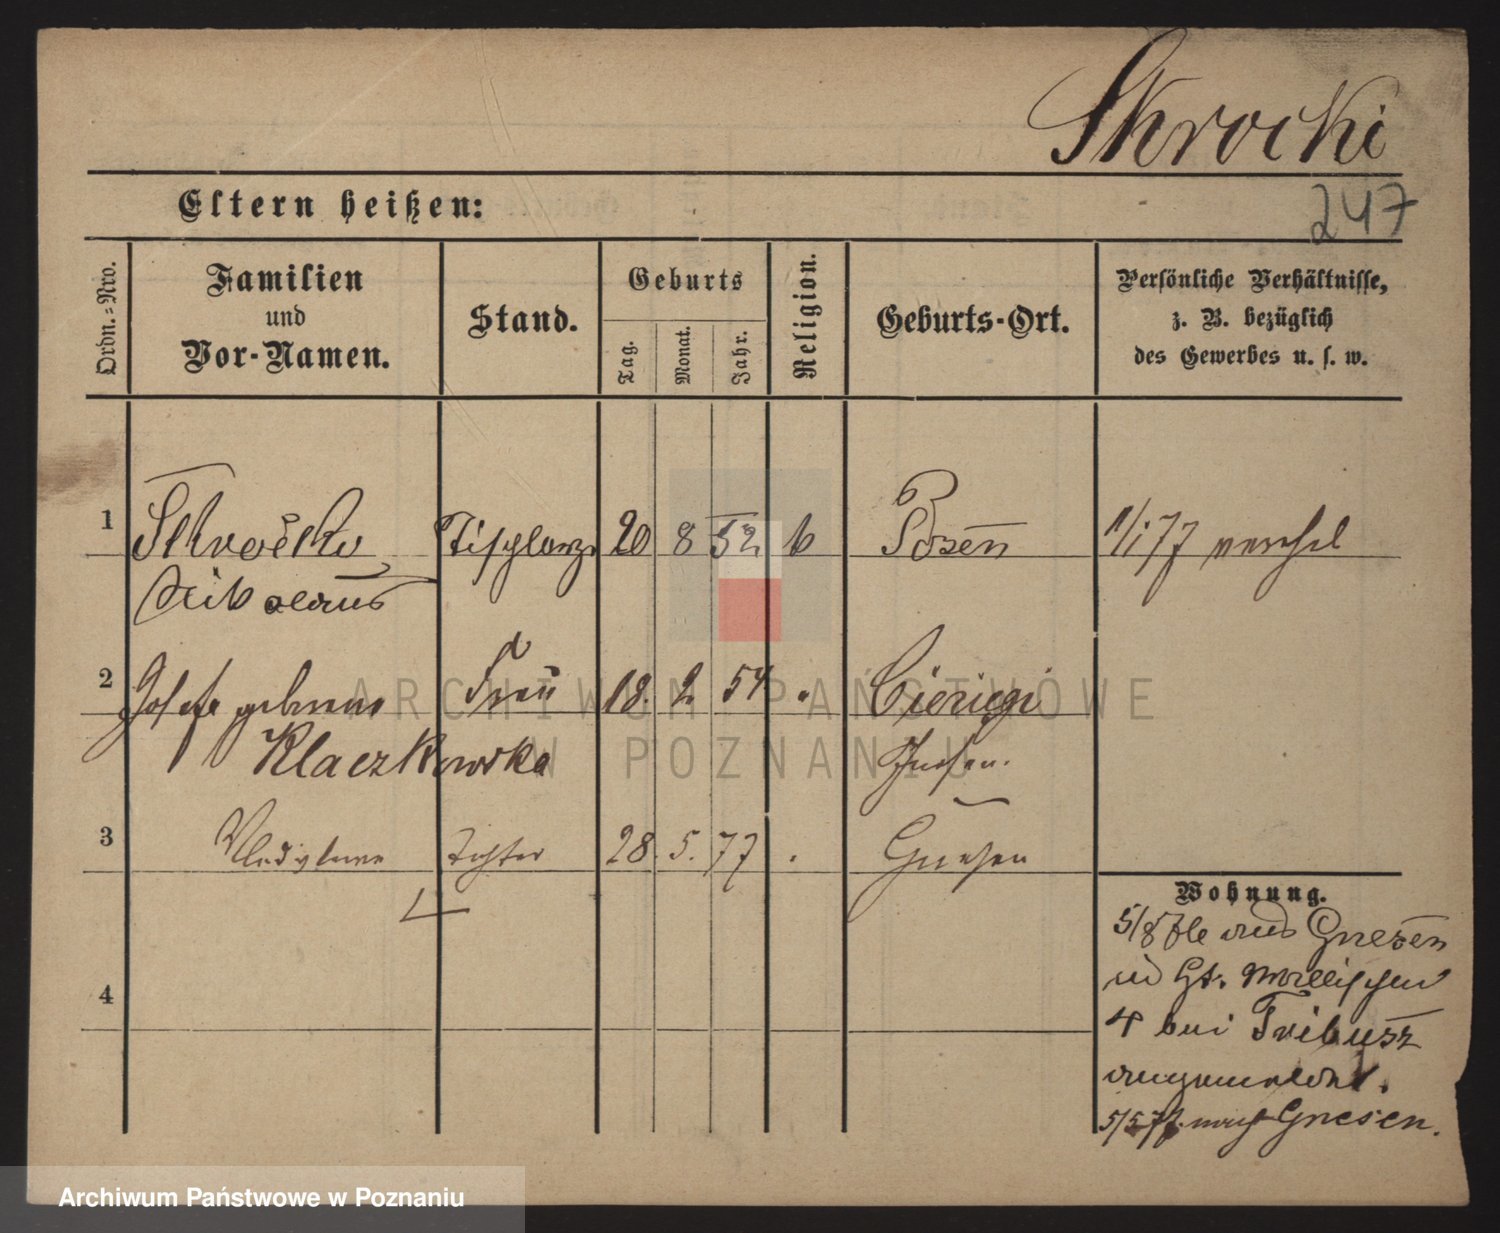 Skrocki
Eltern heißen:
247
Ordn.-Nro.
Familien
und
Vor-Namen.
Stand.
Geburts
Tag.
Monat.
Jahr.
Religion.
Geburts-Ort.
Persönliche Verhältnisse,
z. B. bezüglich
des Gewerbes u. s. w.
1
Skrocki
Tischlerg.
20 8 52
Posen
11/1 77
Nikolaus
2
Josefa geborene
Frau
18. 2. 54
Klaczkowska
3
Tochter
28. 5. 77
Gnesen
Wohnung.
aus Gnesen
4
4 bei Tribusz
angemeldet.
5/5 77 nach Gnesen.
ARCHIWUM PAŃSTWOWE
W POZNANIU
Archiwum Państwowe w Poznaniu